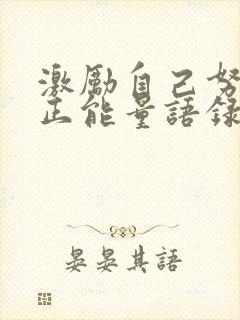 激勵自己努
正能量語錄
晏晏其語